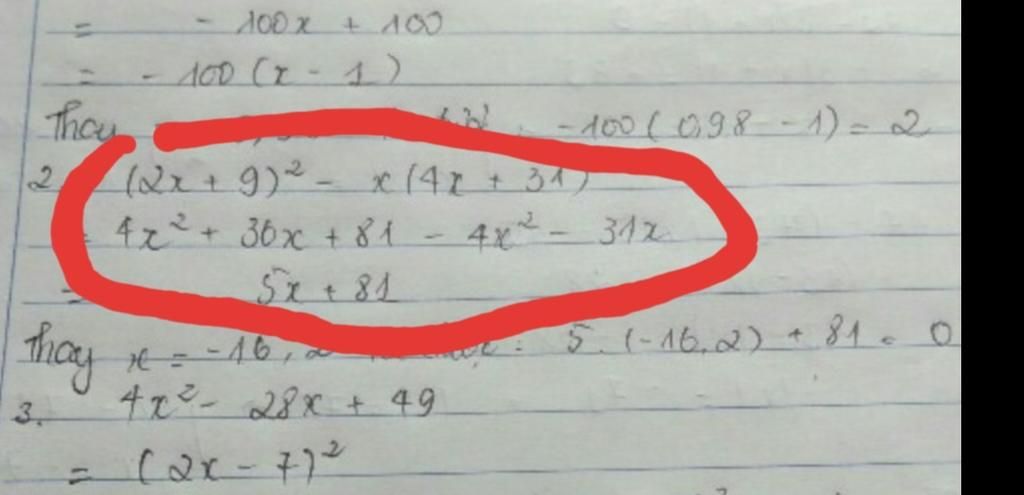 = - 100x + 100
= - 100 (x - 1)
Thay : -100 ( 0,98 - 1) = 2
2. (2x + 9)² - x (4x + 31)
= 4x² + 36x + 81 - 4x² - 31x
= 5x + 81
Thay x = -16,2 : 5. (-16,2) + 81 = 0
3. 4x² - 28x + 49
= (2x - 7)²